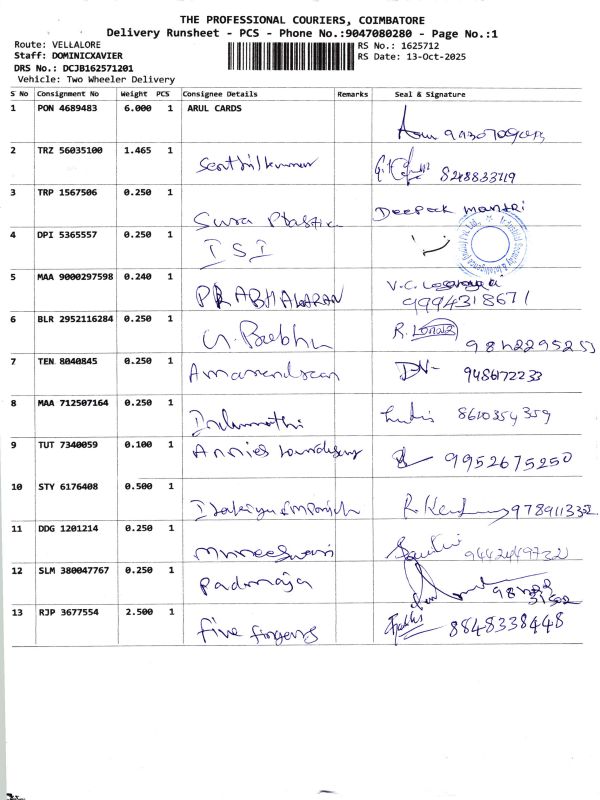 THE PROFESSIONAL COURIERS, COIMBATORE
Delivery Runsheet - PCS - Phone No.:9047080280 - Page No.:1
Route: VELLALORE
Staff: DOMINICXAVIER
DRS No.: DCJB162571201
Vehicle: Two Wheeler Delivery
RS No.: 1625712
RS Date: 13-Oct-2025
S No Consignment No Weight PCS Consignee Details Remarks Seal & Signature
1 PON 4689483 6.000 1 ARUL CARDS
2 TRZ 56035100 1.465 1 Senthilkumar
3 TRP 1567506 0.250 1 Sura Plastic Deepak mantri
4 DPI 5365557 0.250 1 ISI
5 MAA 9000297598 0.240 1 PRABHAKARAN V.C. 9994318671
6 BLR 2952116284 0.250 1 G. Prabhu R.
7 TEN 8040845 0.250 1 Amarendran 9486172233
8 MAA 712507164 0.250 1 Indumathi 8610354359
9 TUT 7340059 0.100 1 Annies 9952675250
10 STY 6176408 0.500 1 978911332
11 DDG 1201214 0.250 1 Muneeswari
12 SLM 380047767 0.250 1 Padmaja
13 RJP 3677554 2.500 1 five fingers 8848338448